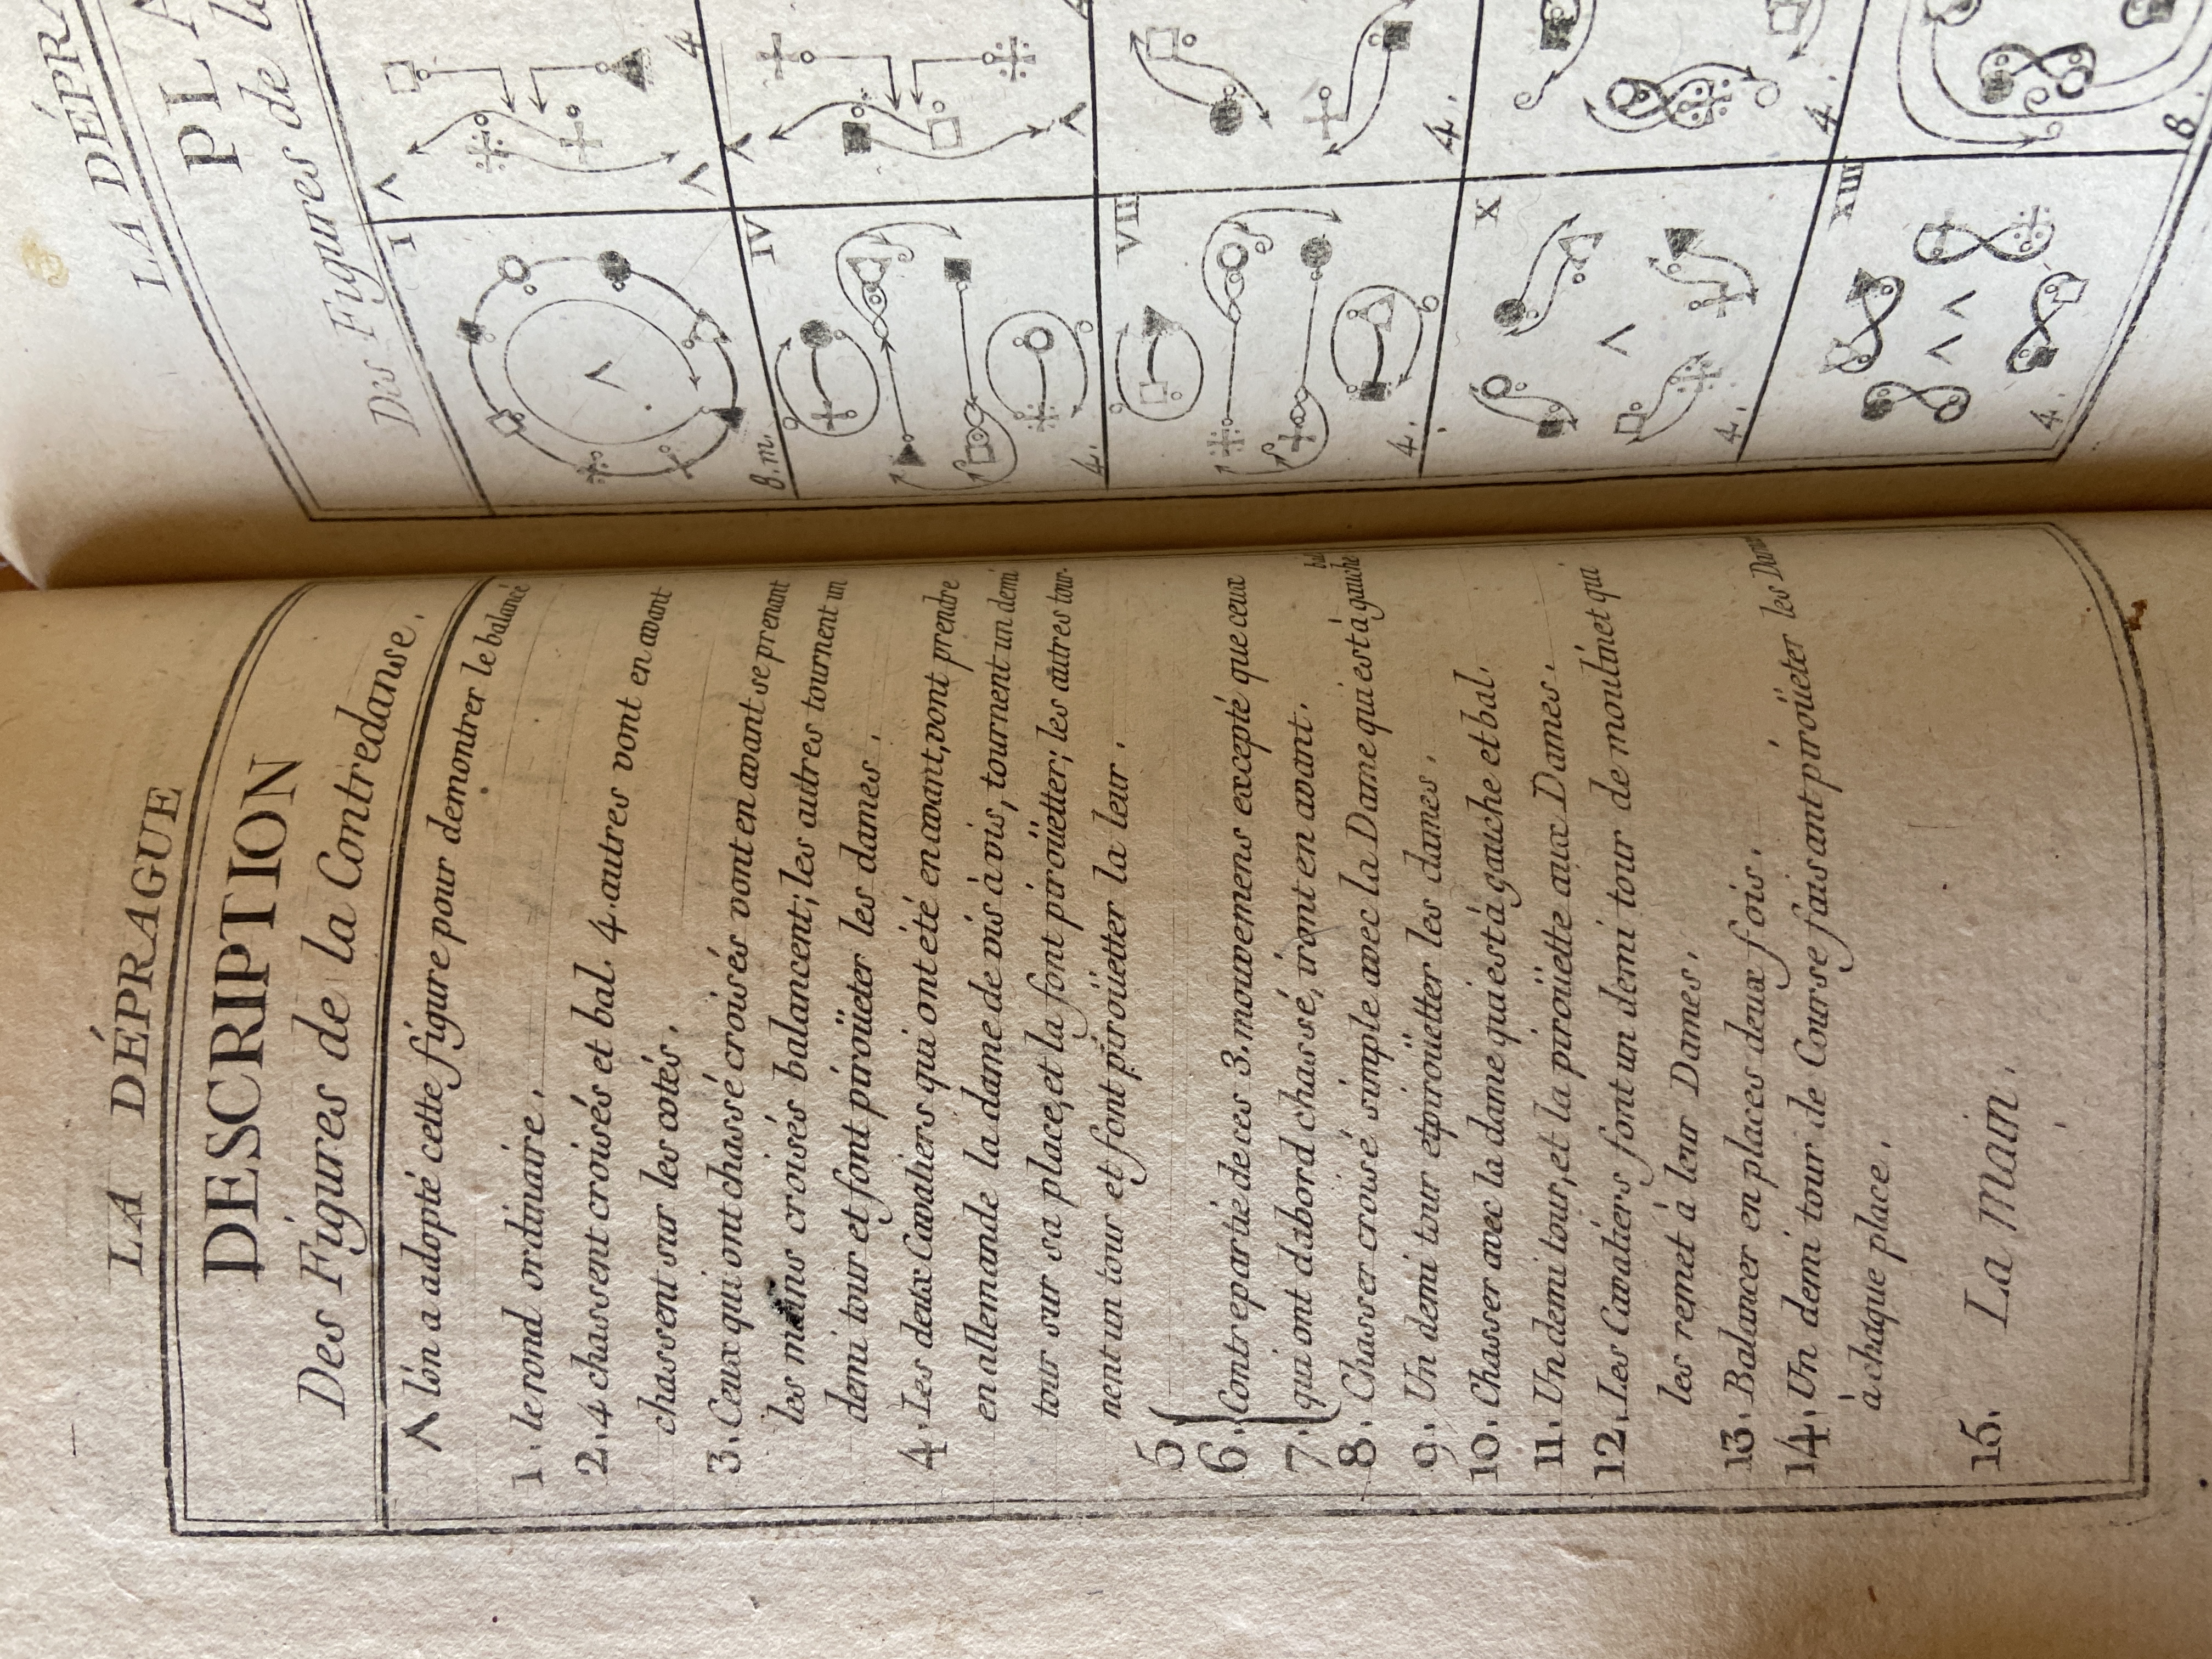 LA DÉPRAGUE
DESCRIPTION
Des Figures de la Contredanse.
Λ lón a adopté cette figure pour demontrer le balancé
1. le rond ordinaire.
2. 4 chassent croisés et bal. 4. autres vont en avant
chassent sur les cotés.
3. Ceux qui ont chassé croisés vont en avant se prenant
les mains croisés balancent; les autres tournent un
demi tour et font piroüeter les dames.
4. Les deux Cavaliers qui ont été en avant, vont prendre
en allemande la dame de vis à vis, tournent un demi
tour sur sa place, et la font piroüetter; les autres tour-
nent un tour et font piroüetter la leur.
5
6. Contrepartie de ces 3. mouvemens excepté que ceux
7. qui ont dabord chassé, iront en avant.
8. Chasser croisé simple avec la Dame qui est à gauche bal
9. Un demi tour et piroüetter les dames.
10. Chasser avec la dame qui est à gauche et bal.
11. Un demi tour, et la piroüette aux Dames.
12. Les Cavaliers font un demi tour de moulinet qui
les remet à leur Dames.
13. Balancer en places deux fois.
14. Un demi tour de Course faisant piroüeter les Dames
à chaque place.
15. La main.
LA DÉPRA
PLA
Des Figures de la
I
8. m.
4
IV
4.
VII
4.
4.
X
4.
4.
XIII
4.
8.